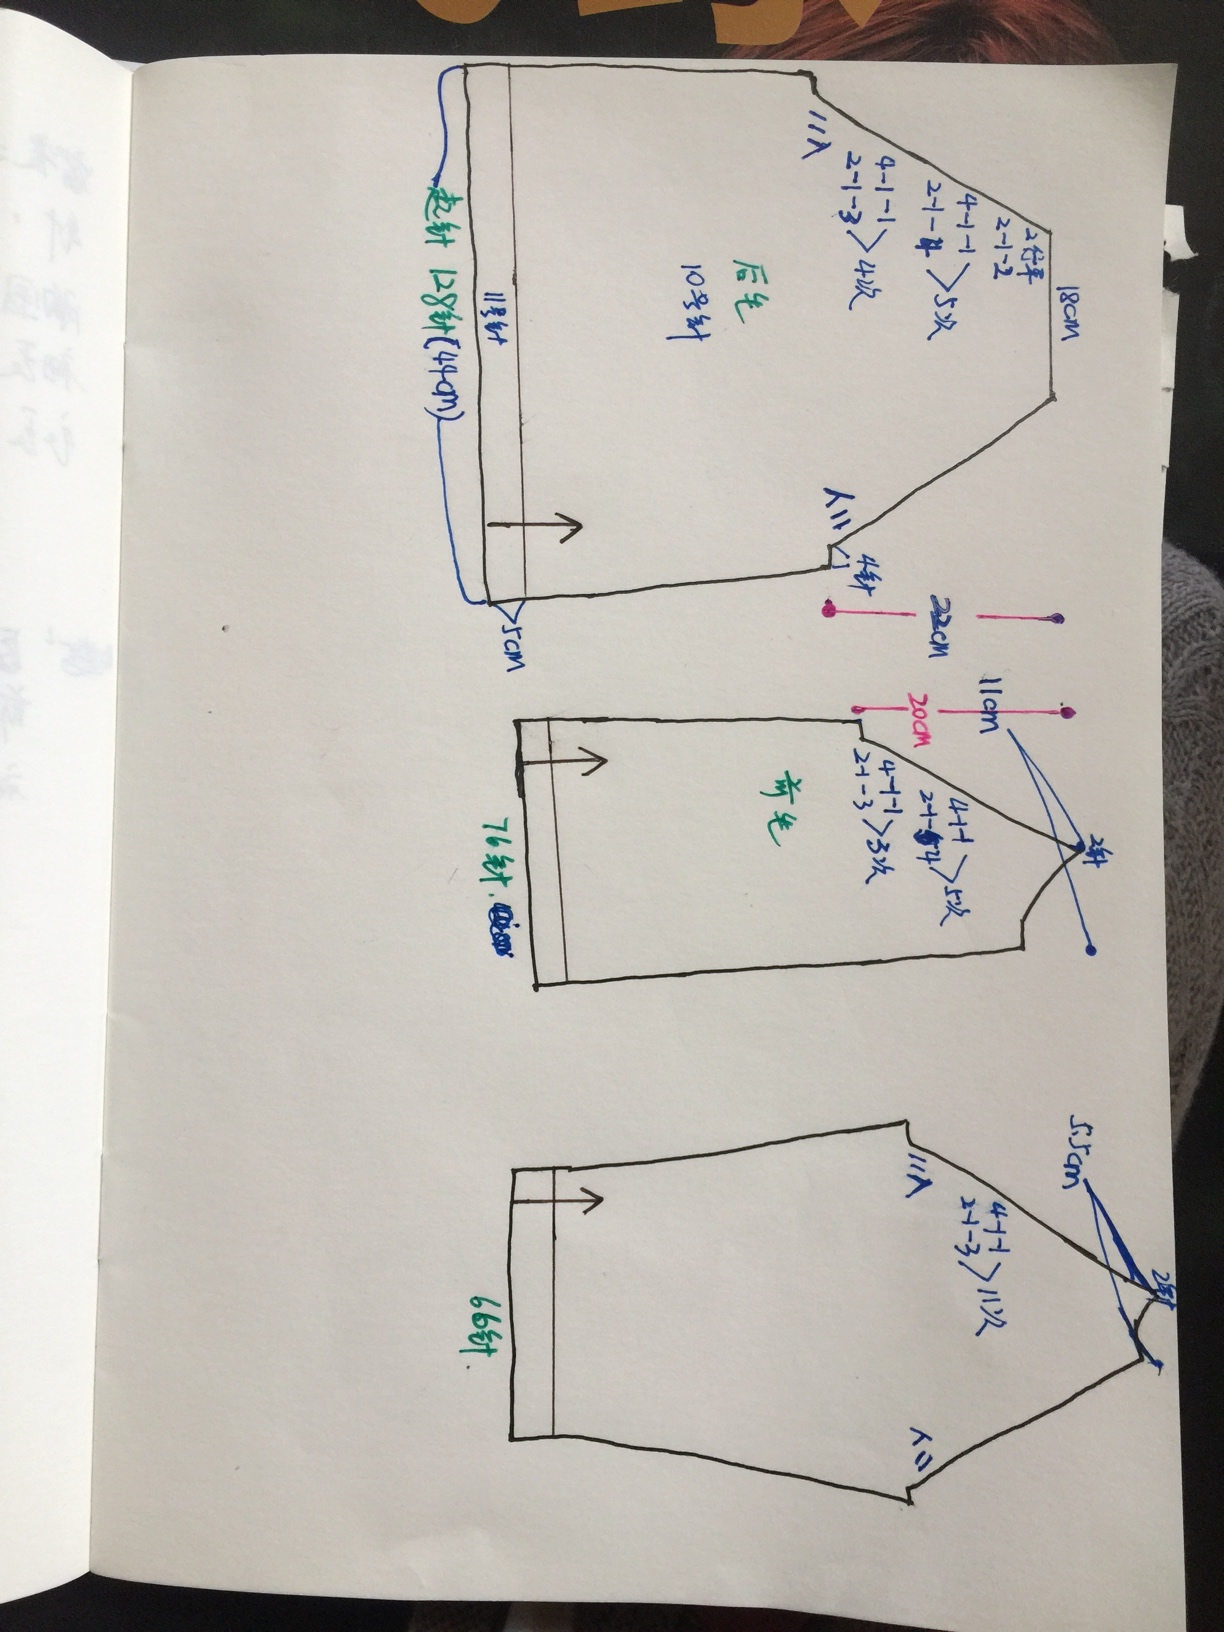 18cm
2行平
2-1-2
4-1-1
2-1-4 > 5次
4-1-1
2-1-3 > 4次
4针
后片
10号针
11号针
起针 128针(44cm)
5cm
22cm
20cm
11cm
2针
4-1-1
2-1-4 > 5次
4-1-1
2-1-3 > 3次
前片
76针.
5.5cm
2针
4-1-1
2-1-3 > 11次
66针.